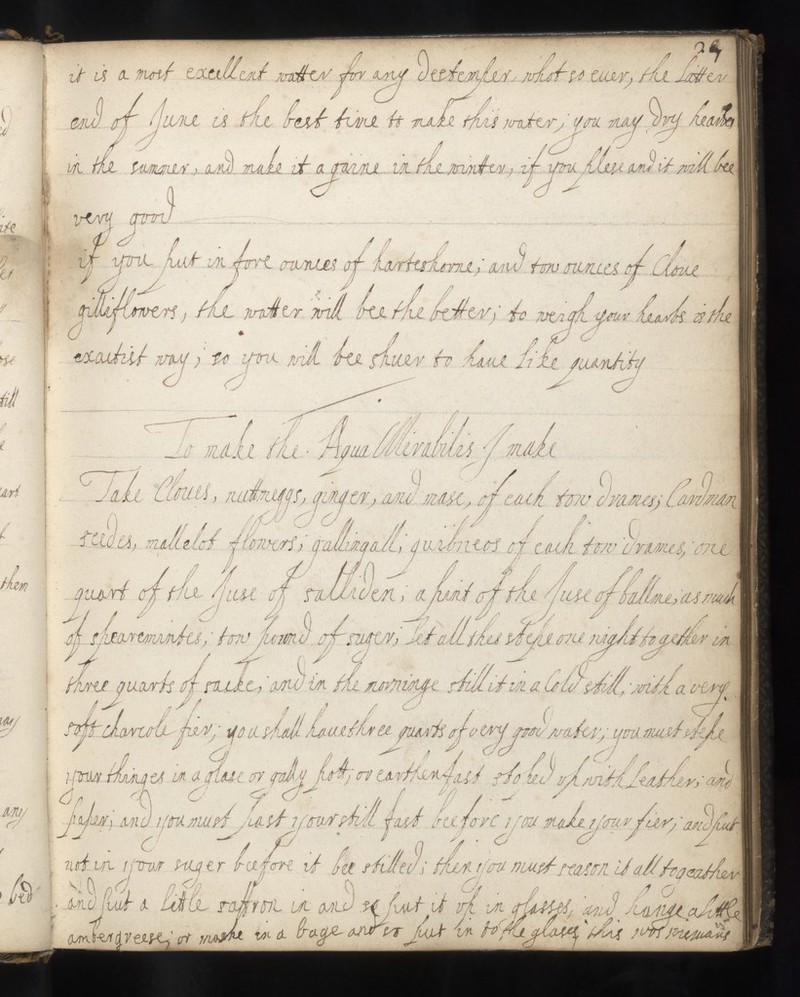 29
it is a most excellent watter for any Deetemper whot so euer, the Latter
end of June is the best time to make this water, you may Dry hearbs
in the sumer, and make it a gaine in the wintter, if you plese and it will bee
very good
if you put in fore ounces of harteshorne; and tow ounces of Cloue
gilliflowers, the watter will bee the better; to weigh your hearbs is the
exactist way; so you will bee shuer to haue Like quantity
To make the Aqua Mirabilis I make
Take Cloues, nuttmeggs, ginger, and mase, of each tow drames; Cardman
seedes, mallelot flowers; gallingall; quibneos of each tow drames; one
quart of the Juse of salliden; a pint of the Juse of ballme, as much
of spearemintes; tow pound of suger; Let all thes stepe one night together in
three quarts of sacke; and in the morninge still it in a Cold still; with a very
soft charcole fier; you shall haue three quarts of very good water; you must stepe
your thinges in a glase or gally pott; or earthen fast stoped vp with Leather; and
paper; and you must past your still fast beefore you make your fier; and put
not in your suger beefore it bee stilled; then you must season it all togeather
and put a little saffron in and so put it vp in glasses, and hange a little
ambergreese; or muske in a bage and so put in to the glases this